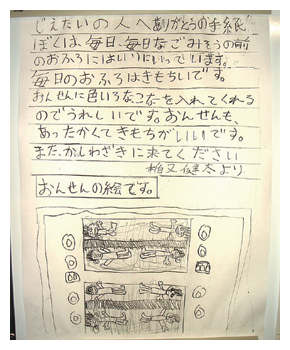 じえたいの人へありがとうの手紙
ぼくは、毎日、毎日なごみそうの前
のおふろにはいりにいっています。
毎日のおふろはきもちいです。
おんせんに色いろなこなを入れてくれる
のでうれしいです。おんせんも、
あったかくてきもちがいいです。
また、かしわざきに来てください
健太より
おんせんの絵です。